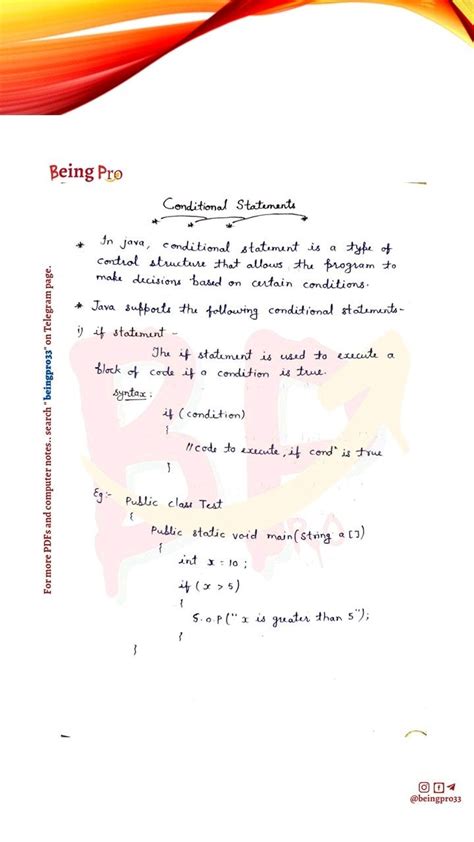 Being Pro
Conditional Statements
* In java, conditional statement is a type of
control structure that allows the program to
make decisions based on certain conditions.
* Java supports the following conditional statements-
i) if statement -
The if statement is used to execute a
block of code if a condition is true.
syntax:
if (condition)
{
//code to execute, if condn is true
}
Eg:- Public class Test
{
Public static void main(String a[])
{
int x = 10;
if (x > 5)
{
S.o.p("x is greater than 5");
}
}
For more PDFs and computer notes.. search "beingpro33" on Telegram page.
BP
PRO
@beingpro33